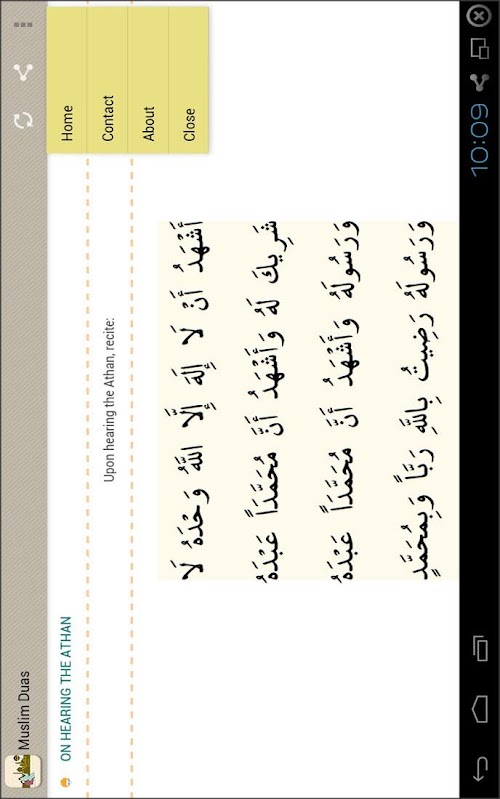 Muslim Duas
Home
Contact
About
Close
ON HEARING THE ATHAN
Upon hearing the Athan, recite:
أَشْهَدُ أَنْ لَا إِلَهَ إِلَّا اللَّهُ وَحْدَهُ لَا
شَرِيكَ لَهُ وَأَشْهَدُ أَنَّ مُحَمَّدَاً عَبْدَهُ
وَرَسُولَهُ وَأَشْهَدُ أَنَّ مُحَمَّدَاً عَبْدَهُ
وَرَسُولَهُ رَضِيتُ بِاللَّهِ رَبَّاً وَبِمُحَمَّدٍ
10:09